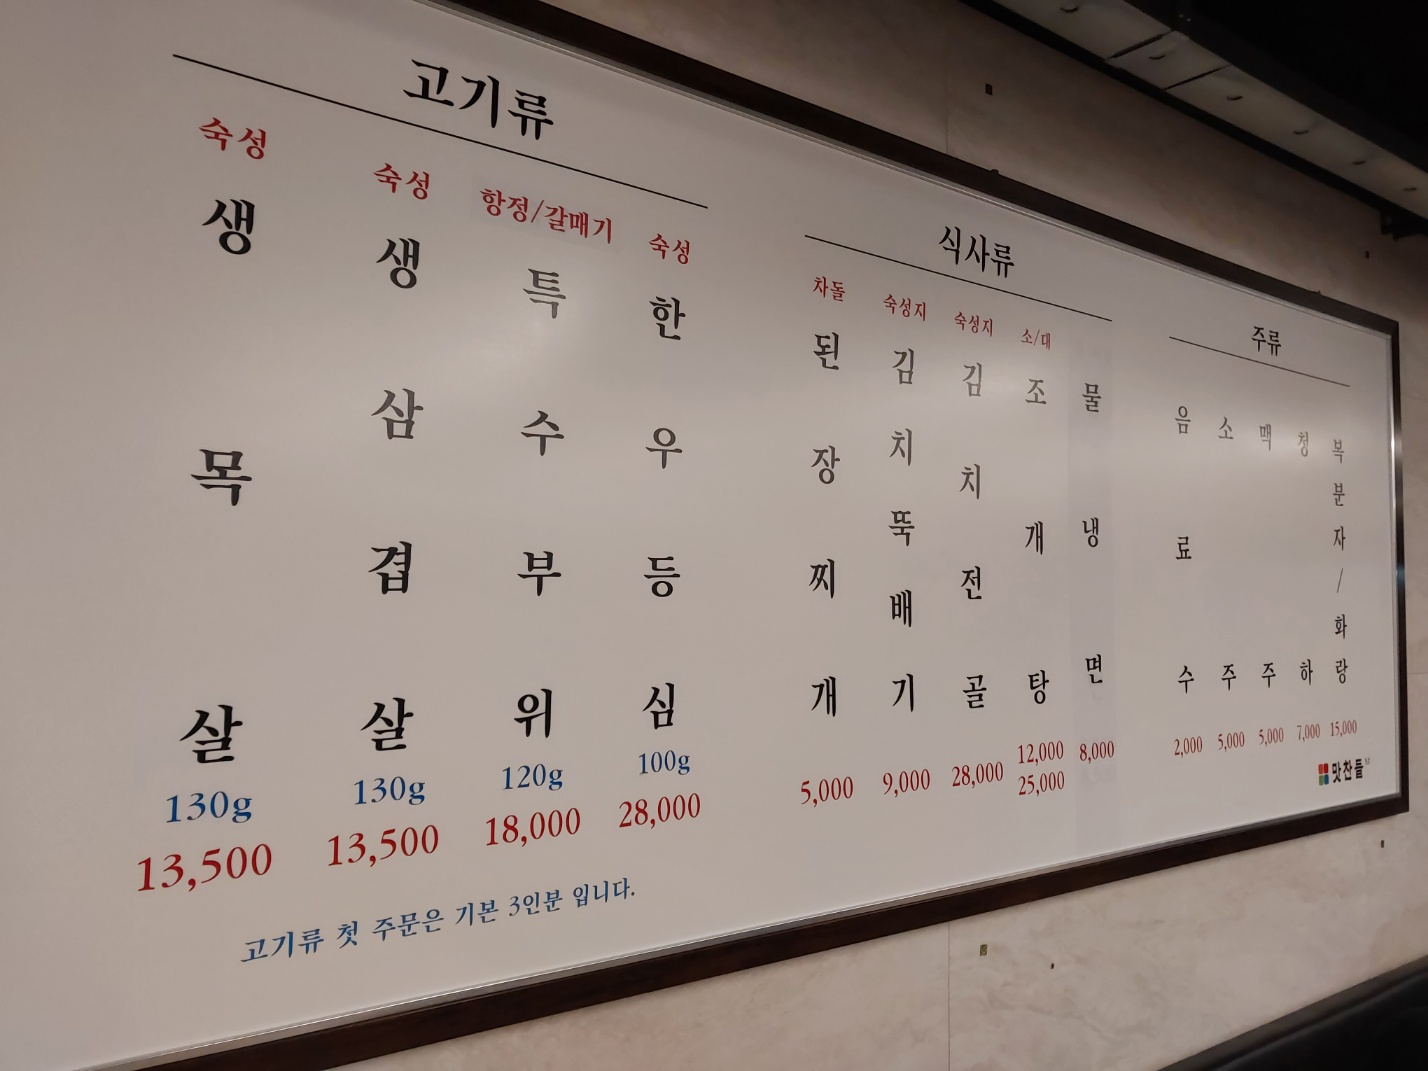 고기류
숙성
생목살
130g
13,500
숙성
생삼겹살
130g
13,500
항정/갈매기
특수부위
120g
18,000
숙성
한우등심
100g
28,000
고기류 첫 주문은 기본 3인분 입니다.
식사류
차돌
된장찌개
5,000
숙성지
김치뚝배기
9,000
숙성지
김치전골
28,000
소/대
조개탕
12,000
25,000
물냉면
8,000
주류
음료수
2,000
소주
5,000
맥주
5,000
청하
7,000
복분자/화랑
15,000
맛찬들